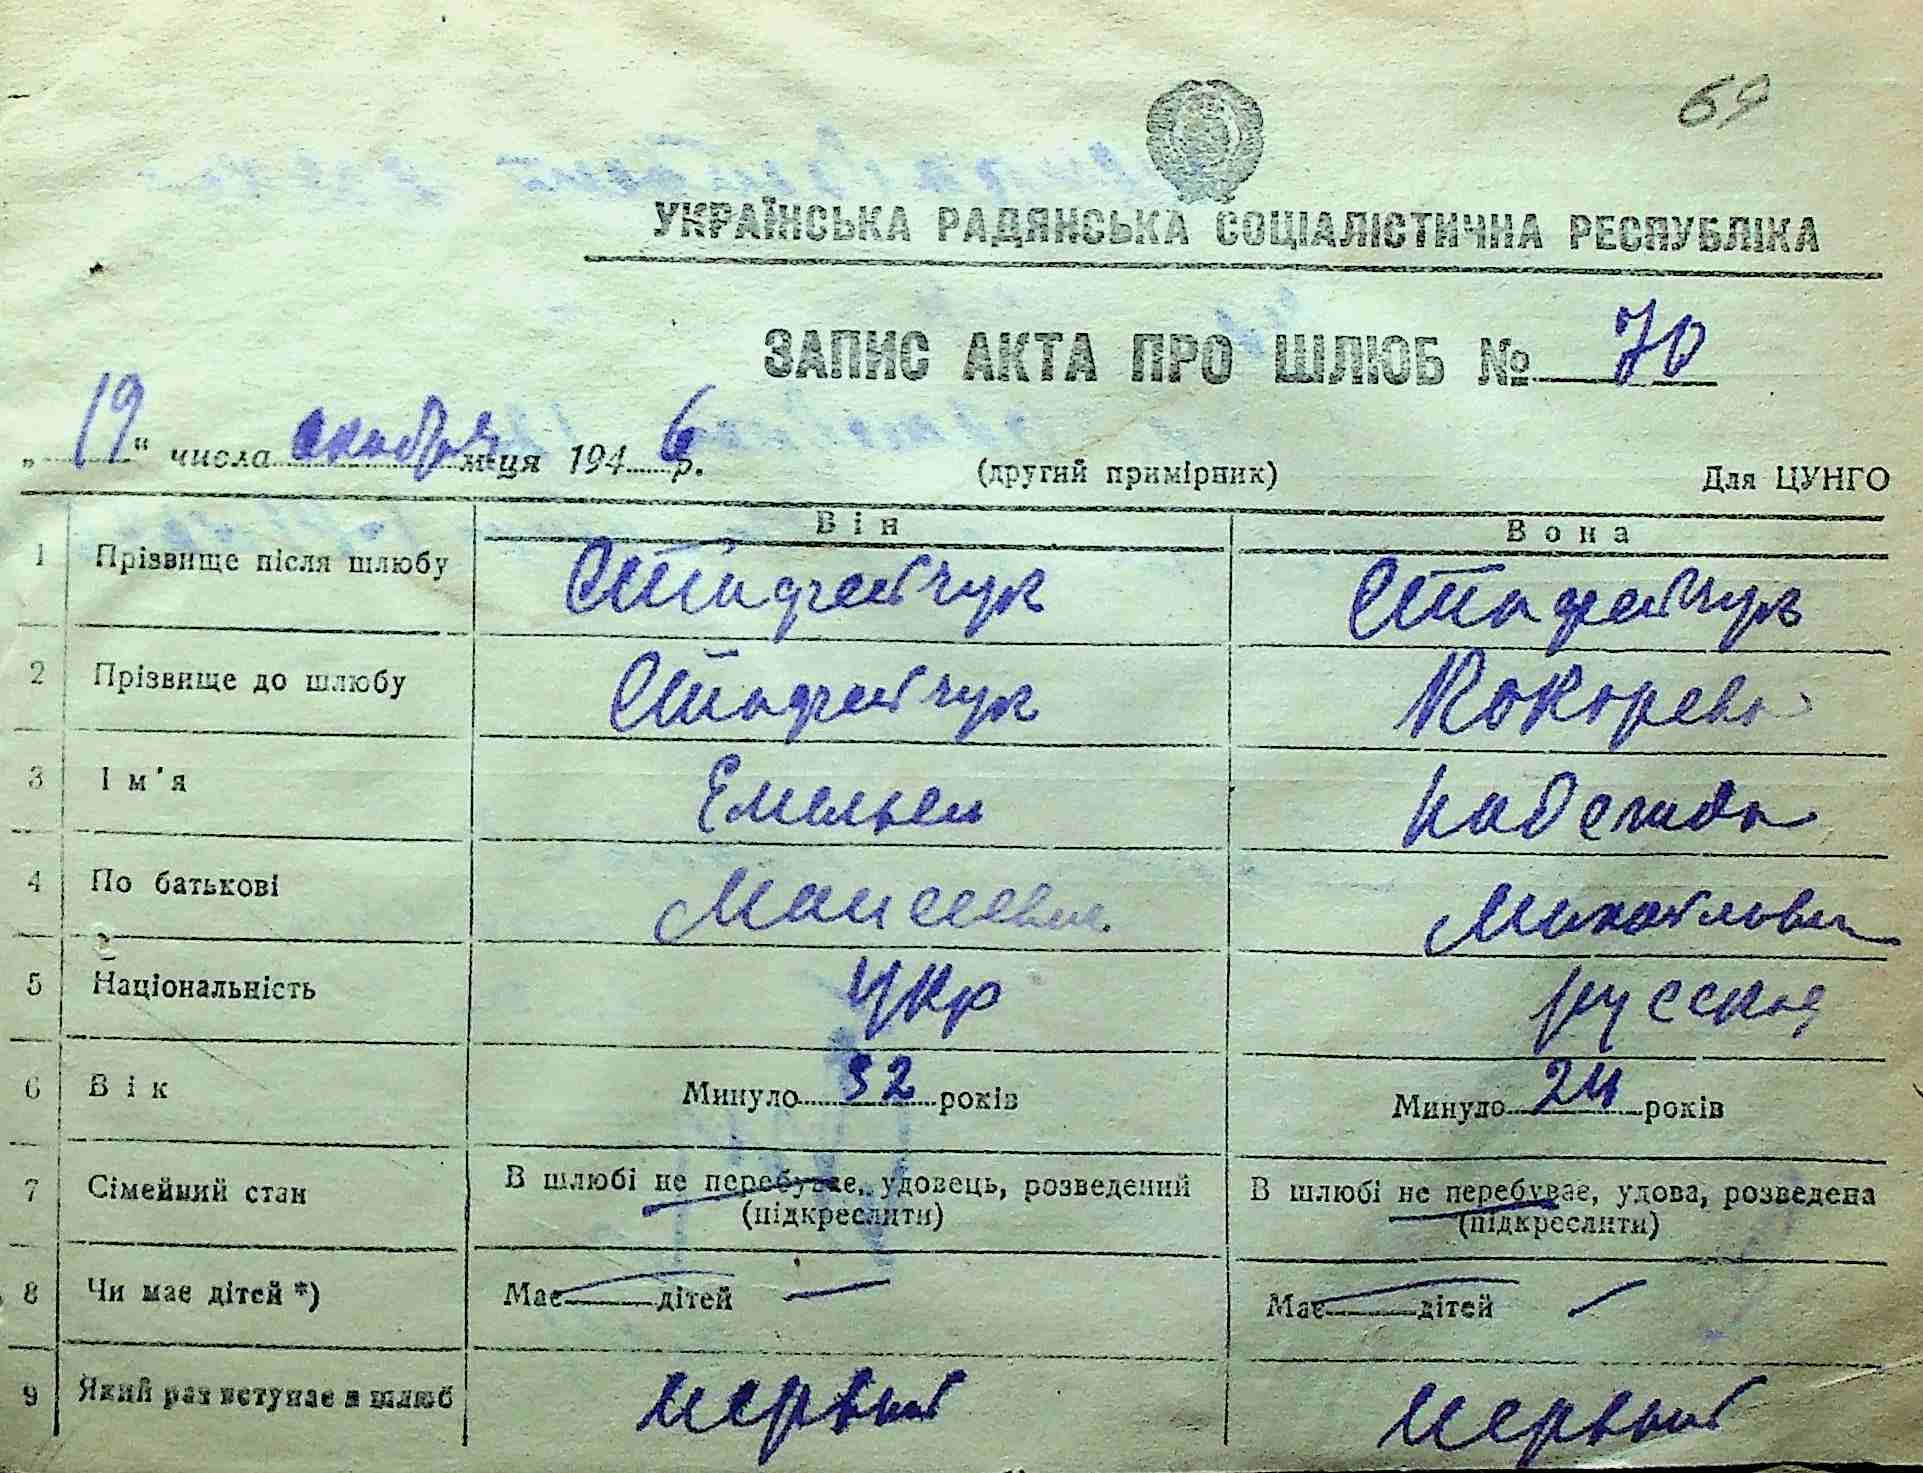 69
УКРАЇНСЬКА РАДЯНСЬКА СОЦІАЛІСТИЧНА РЕСПУБЛІКА
ЗАПИС АКТА ПРО ШЛЮБ № 70
„19“ числа октября м-ця 1946 р. (другий примірник) Для ЦУНГО
Він Вона
1 Прізвище після шлюбу
2 Прізвище до шлюбу Кокорева
3 Ім'я Емельян Надежда
4 По батькові Моисеевич Михайловн
5 Національність укр русская
6 Вік Минуло 32 років Минуло 24 років
7 Сімейний стан В шлюбі не перебуває, удовець, розведений В шлюбі не перебуває, удова, розведена
(підкреслити) (підкреслити)
8 Чи має дітей *) Має — дітей — Має — дітей —
9 Який раз вступає в шлюб первый первый